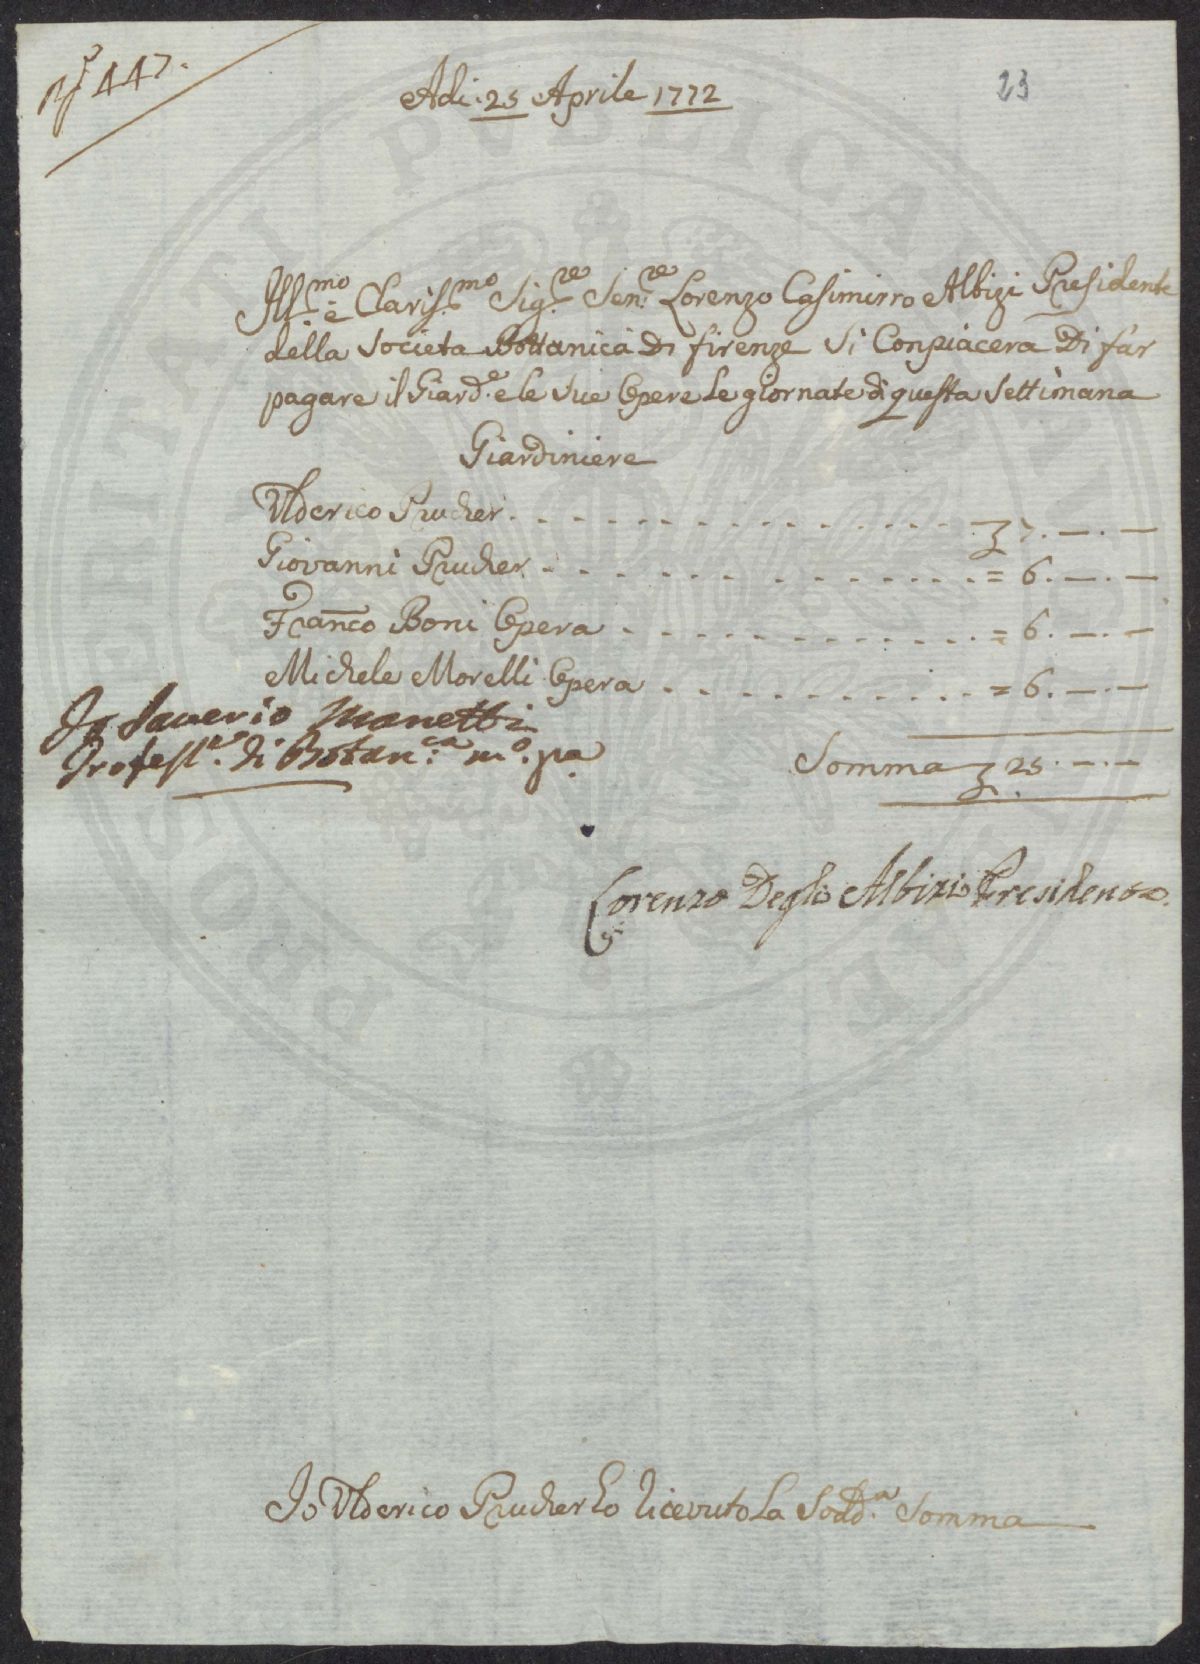 N.º 447.
23
Adi: 25 Aprile 1772
Ill.mo è Claris.mo Sig.re Sen.re Lorenzo Casimirro Albizi Presidente
della Societa Bottanica Di firenze Si Conpiacera Di far
pagare il Giard.e e le sue Opere Le giornate di questa Settimana
Giardiniere
Ulderico Prucher. - - - - - - - - - - - - - - - ʒ 7. —. —
Giovanni Prucher. - - - - - - - - - - - - = 6. —. —
Franco Boni Opera - - - - - - - - - - = 6. —. —
Michele Morelli Opera - - - - - - - - - = 6. —. —
Somma ʒ 25. —. —
Io Saverio Manetti
Profess.re di Botan.ca m.o pa
Lorenzo Degli Albizi Presidente.
Io Ulderico Prucher ho ricevuto La Sodd.a Somma
PROSPERITATI PUBLICAE AUGENDAE